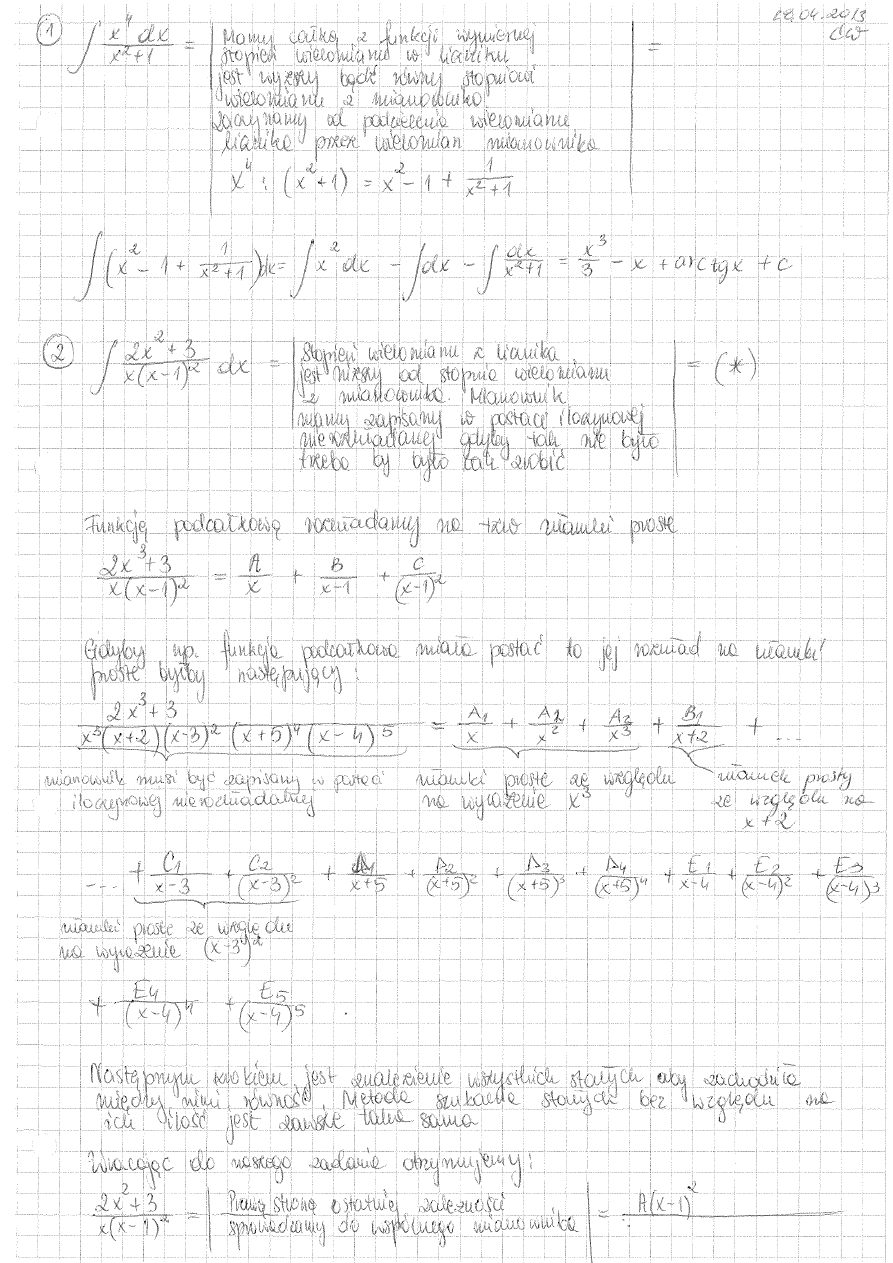 09.04.2013
ĆW
① ∫ x⁴ dx / x²+1 = | Mamy całkę z funkcji wymiernej | =
stopień wielomianu w liczniku
jest wyższy bądź równy stopniowi
wielomianu z mianownika
zaczynamy od podzielenia wielomianu
licznika przez wielomian mianownika
x⁴ : (x²+1) = x² - 1 + 1/(x²+1)
∫(x² - 1 + 1/(x²+1))dx = ∫x² dx - ∫dx - ∫ dx/(x²+1) = x³/3 - x + arctgx + c
② ∫ (2x²+3)/(x(x-1)²) dx = | Stopień wielomianu z licznika | = (*)
jest niższy od stopnia wielomianu
z mianownika. Mianownik
mamy zapisany w postaci iloczynowej
nierozkładalnej gdyby tak nie było
trzeba by było tak zrobić
Funkcję podcałkową rozkładamy na tzw ułamki proste
(2x³+3)/(x(x-1)²) = A/x + B/(x-1) + C/(x-1)²
Gdyby np. funkcja podcałkowa miała postać to jej rozkład na ułamki
proste byłby następujący:
(2x³+3)/(x³(x+2)(x-3)²(x+5)⁴(x-4)⁵) = A₁/x + A₂/x² + A₃/x³ + B₁/(x+2) + ...
mianownik musi być zapisany w postaci ułamki proste ze względu ułamek prosty
iloczynowej nierozkładalnej na wyrażenie x³ ze względu na
x+2
... + C₁/(x-3) + C₂/(x-3)² + D₁/(x+5) + D₂/(x+5)² + D₃/(x+5)³ + D₄/(x+5)⁴ + E₁/(x-4) + E₂/(x-4)² + E₃/(x-4)³
ułamki proste ze względu
na wyrażenie (x-3)²
+ E₄/(x-4)⁴ + E₅/(x-4)⁵ .
Następnym krokiem jest znalezienie wszystkich stałych aby zachodziła
między nimi równość. Metoda szukania stałych bez względu na
ich ilość jest zawsze taka sama
Wracając do naszego zadania otrzymujemy:
(2x²+3)/(x(x-1)²) = | Prawą stronę ostatniej zależności | = A(x-1)²
sprowadzamy do wspólnego mianownika